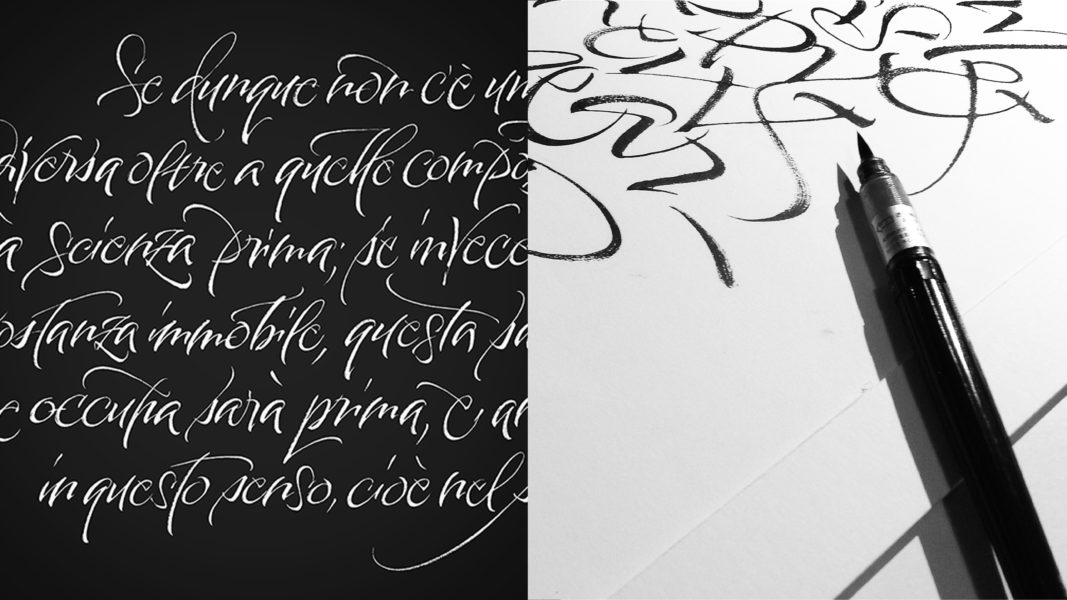 Se dunque non c'è un
diversa oltre a quelle compo
a scienza prima; se invece
ostanza immobile, questa
occupa sarà prima, e an
in questo senso, cioè nel